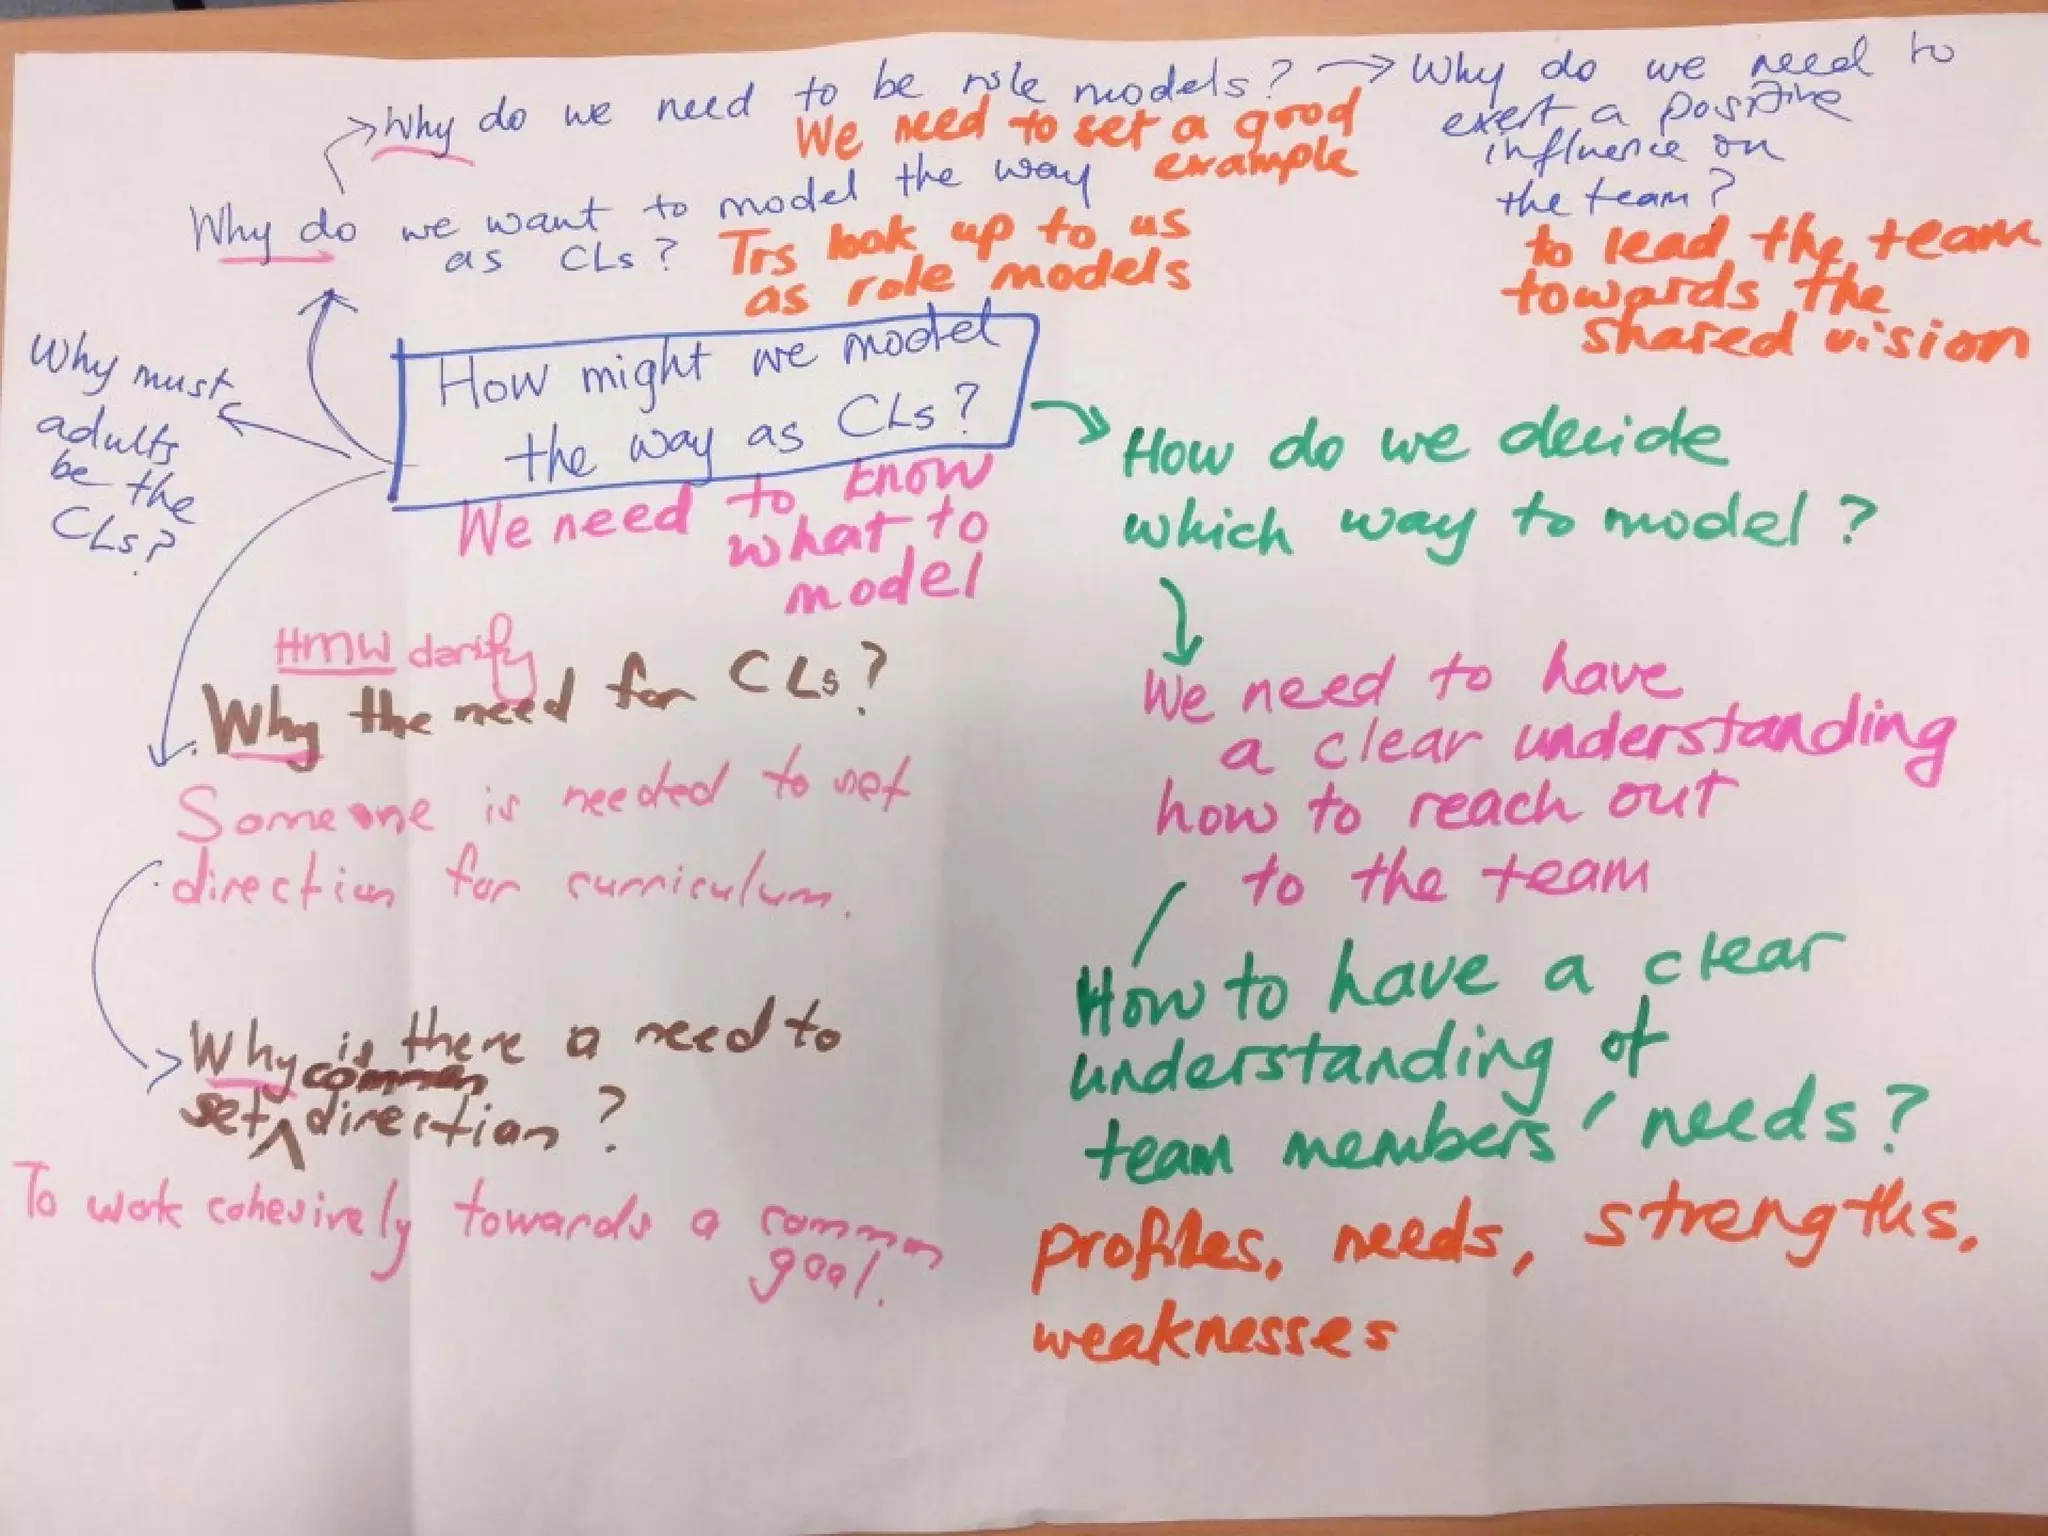 Why do we need to be role models?
We need to set a good
example
Why do we need to
exert a positive
influence on
the team?
to lead the team
towards the
shared vision
Why do we want to model the way
as CLs?
Trs look up to us
as role models
Why must
adults
be the
CLs?
How might we model
the way as CLs?
We need to know
what to
model
How do we decide
which way to model?
We need to have
a clear understanding
how to reach out
to the team
How to have a clear
understanding of
team members' needs?
profiles, needs, strengths,
weaknesses
HMW clarify
Why the need for CLs?
Someone is needed to set
direction for curriculum.
Why is there a need to
common
set direction?
To work cohesively towards a common
goal.